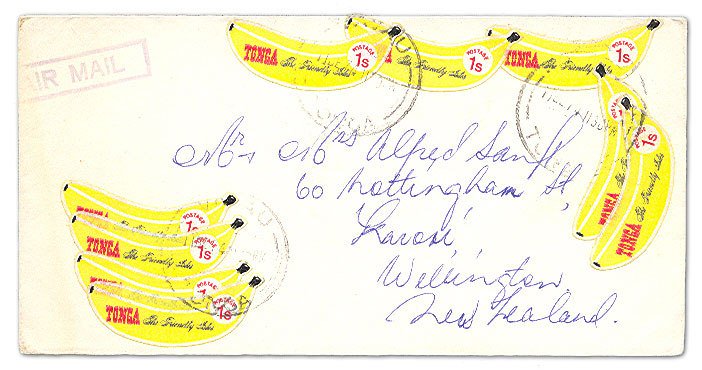 AIR MAIL
TONGA The Friendly Isles POSTAGE 1s
The Friendly Isles POSTAGE 1s
TONGA The Friendly Isles POSTAGE 1s
TONGA The Friendly Isles
TONGA The Friendly Isles POSTAGE 1s
Mr & Mrs Alfred
60 Nottingham St,
Karori,
Wellington
New Zealand.
TONGA POSTAGE 1s
TONGA The Friendly Isles POSTAGE 1s
TONGA POSTAGE
TONGA The Friendly Isles POSTAGE 1s